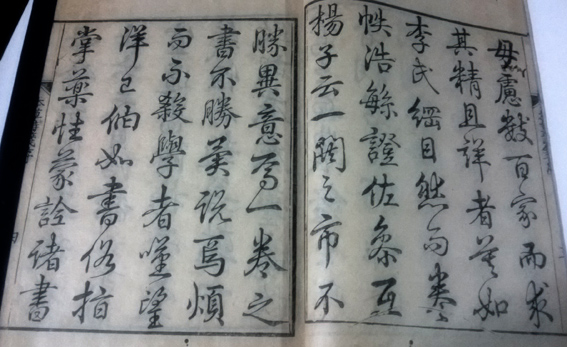 毋慮數百家而求
其精且詳者莫如
李氏綱目然而卷
帙浩緐證佐參互
揚子云一閧之市不
勝異意焉一卷之
書不勝異說焉煩
而不殺學者嘆望
洋已他如書俗指
掌藥性蒙詮諸書